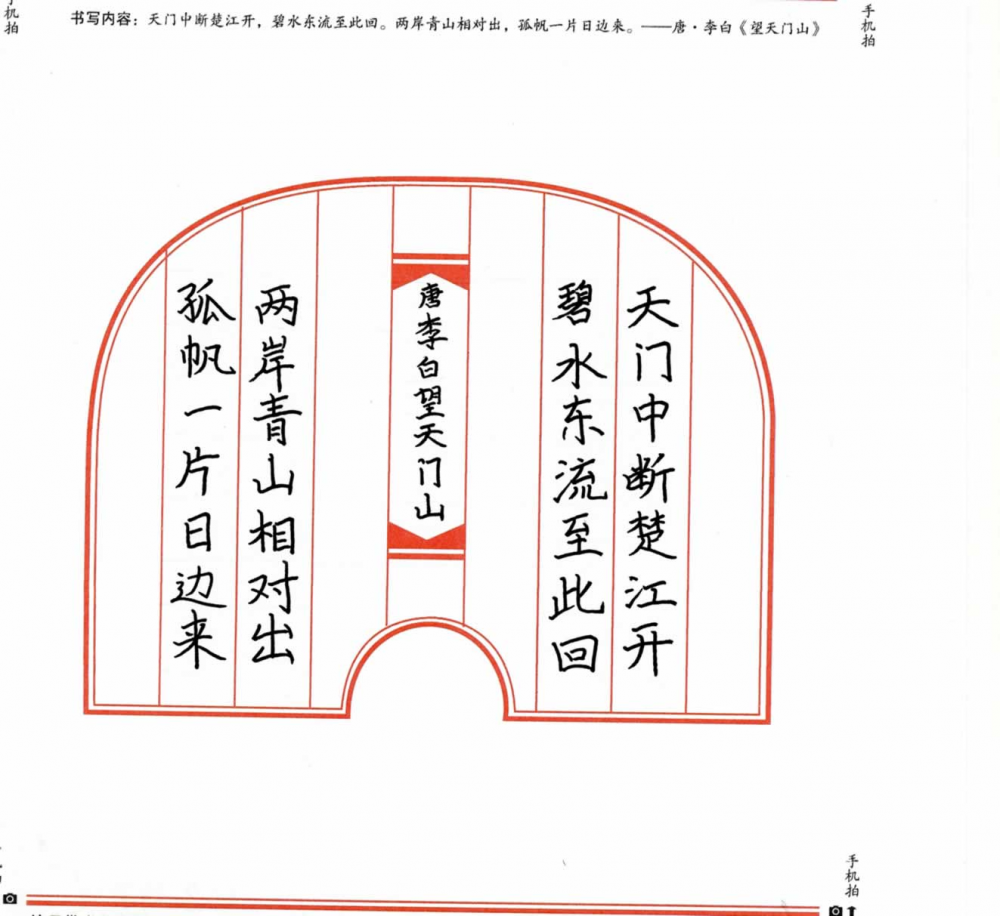 手机拍
手机拍
书写内容：天门中断楚江开，碧水东流至此回。两岸青山相对出，孤帆一片日边来。——唐·李白《望天门山》
天门中断楚江开
碧水东流至此回
唐李白望天门山
两岸青山相对出
孤帆一片日边来
手机拍